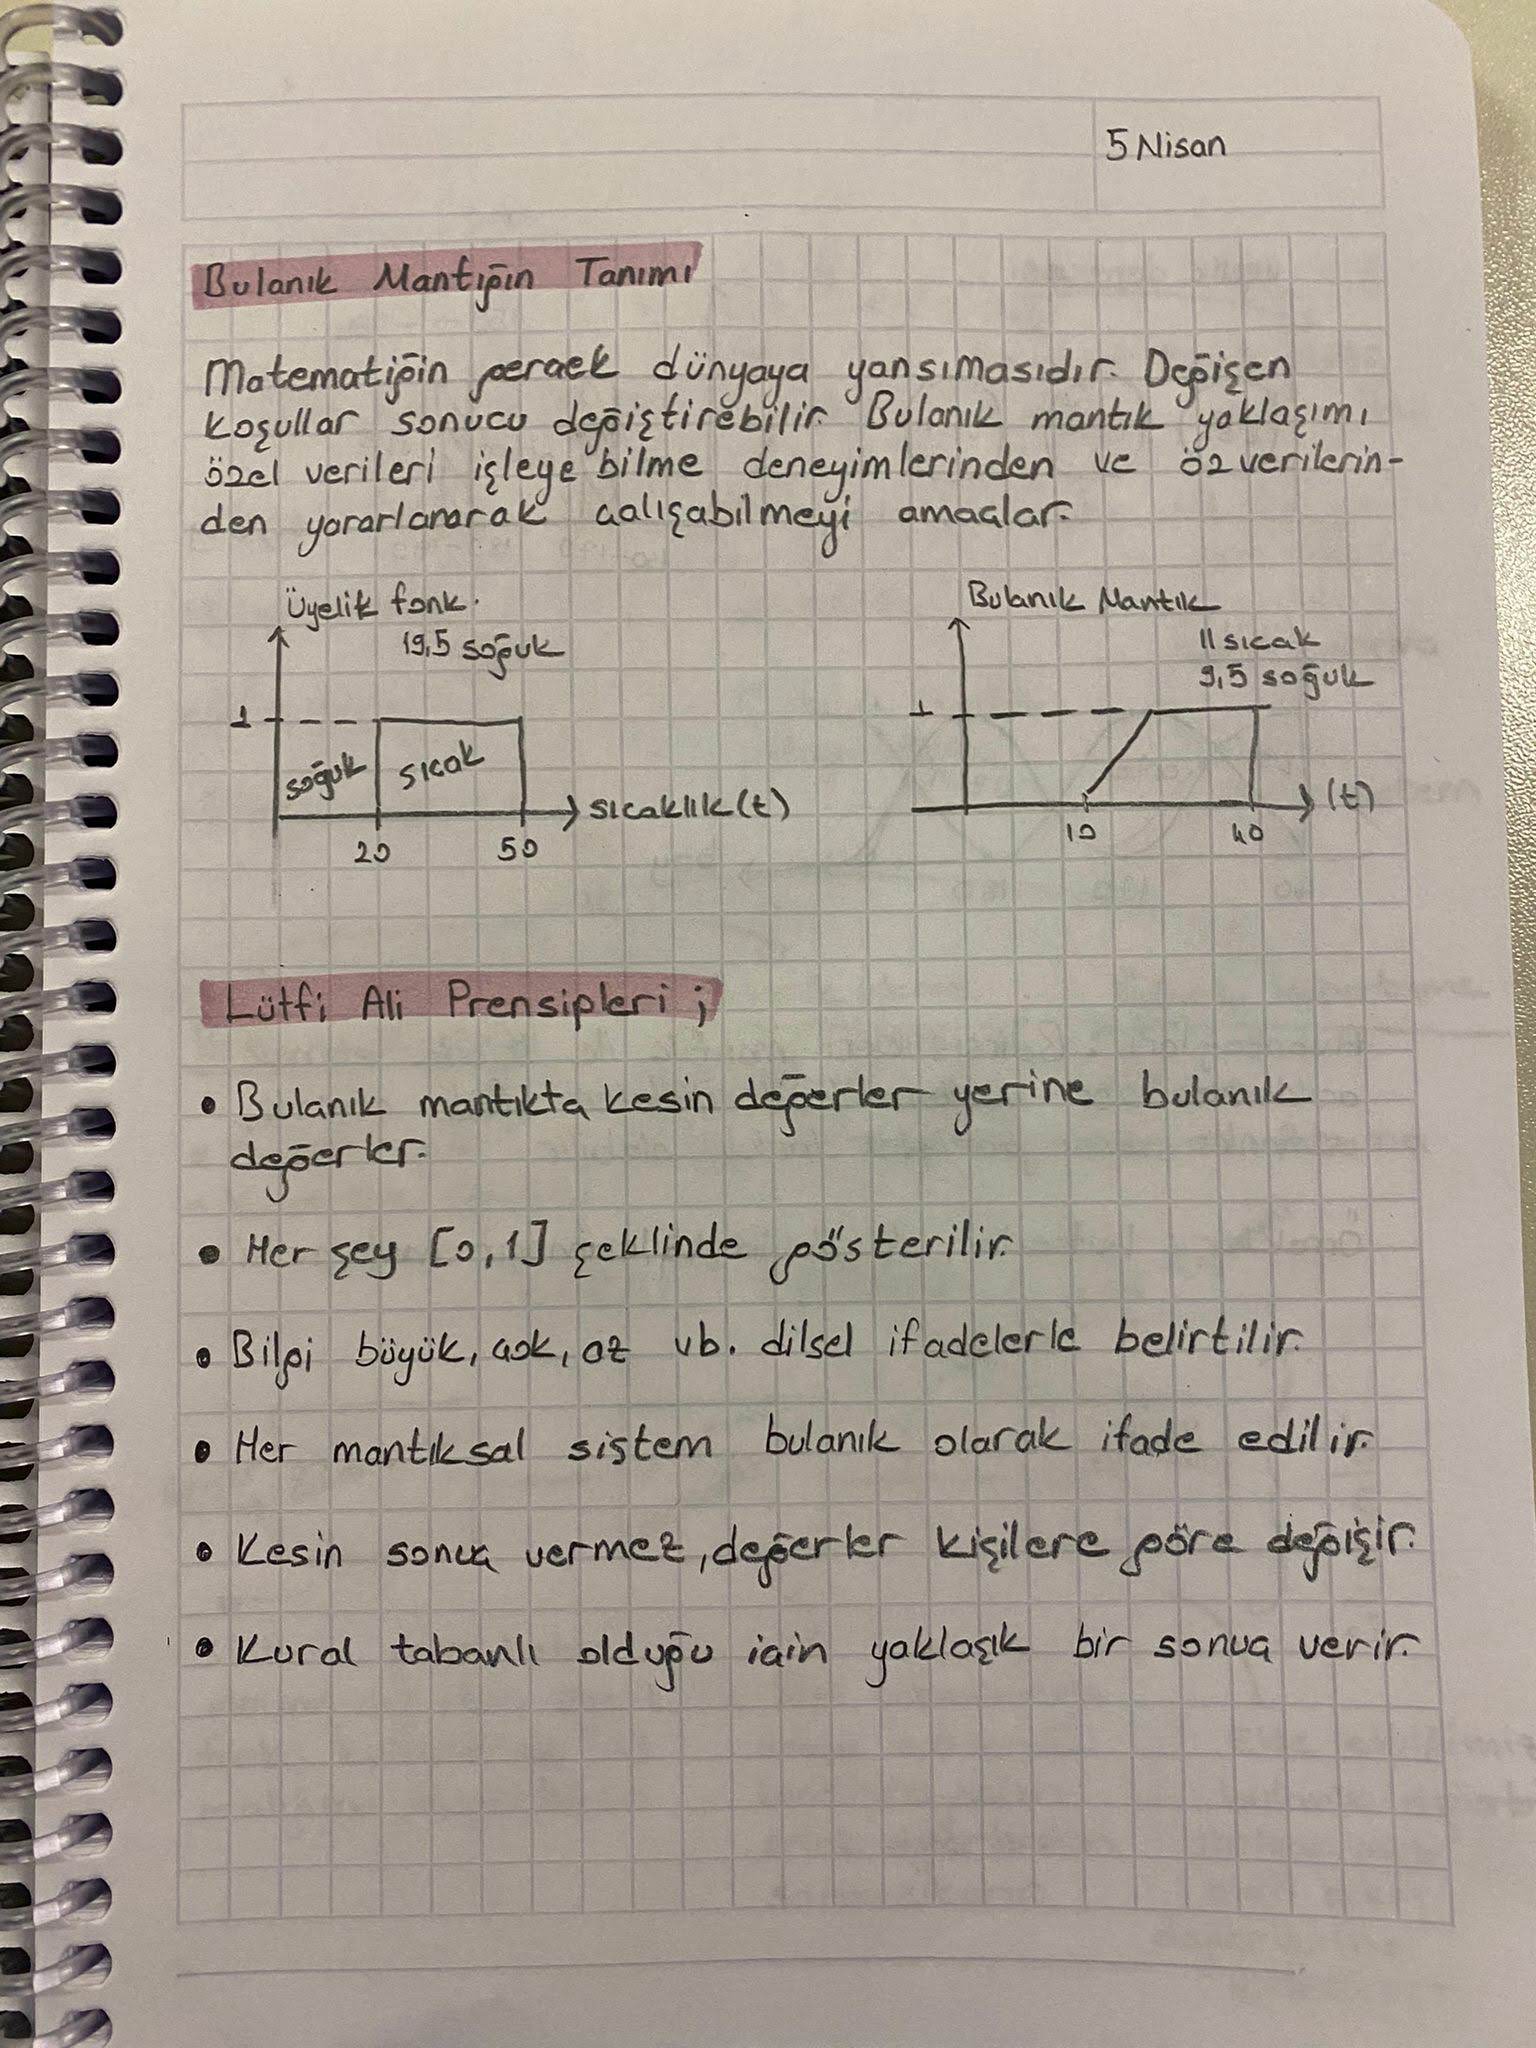 5 Nisan
Bulanık Mantığın Tanımı
Matematiğin gerçek dünyaya yansımasıdır. Değişen
koşullar sonucu değiştirebilir. Bulanık mantık yaklaşımı
özel verileri işleye bilme deneyimlerinden ve öz verilerin-
den yararlanarak çalışabilmeyi amaçlar.
Üyelik fonk.
19,5 soğuk
1
soğuk
sıcak
sıcaklık (t)
20
50
Bulanık Mantık
11 sıcak
9,5 soğuk
1
(t)
10
40
Lütfi Ali Prensipleri ;
• Bulanık mantıkta kesin değerler yerine bulanık
değerler.
• Her şey [0,1] şeklinde gösterilir.
• Bilgi büyük, çok, az vb. dilsel ifadelerle belirtilir.
• Her mantıksal sistem bulanık olarak ifade edilir.
• Kesin sonuç vermez, değerler kişilere göre değişir.
• Kural tabanlı olduğu için yaklaşık bir sonuç verir.